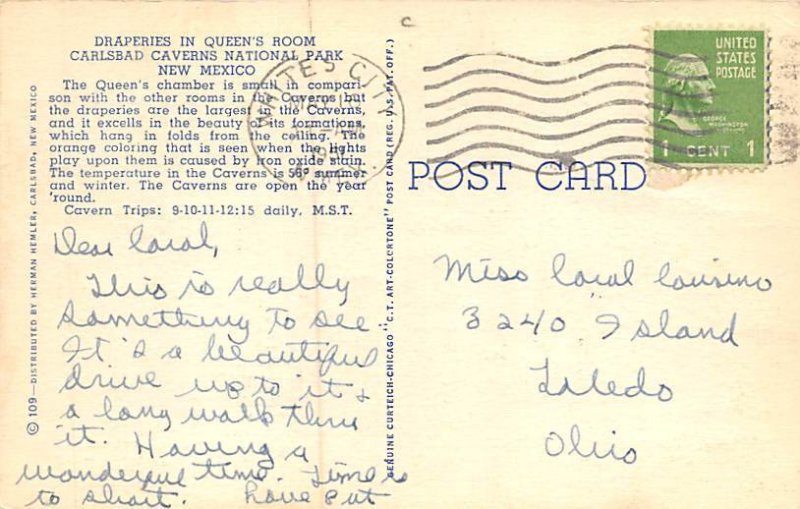 DRAPERIES IN QUEEN'S ROOM
CARLSBAD CAVERNS NATIONAL PARK
NEW MEXICO
The Queen's chamber is small in compari-
son with the other rooms in the Caverns but
the draperies are the largest in the Caverns,
and it excells in the beauty of its formations,
which hang in folds from the ceiling. The
orange coloring that is seen when the lights
play upon them is caused by iron oxide stain.
The temperature in the Caverns is 56° summer
and winter. The Caverns are open the year
'round.
Cavern Trips: 9-10-11-12:15 daily, M.S.T.
Dear Coral,
This is really
something to see.
It's a beautiful
drive up to it &
a long walk thru
it. Having a
wonderful time. Time is
to short. Love Pat
© 109—DISTRIBUTED BY HERMAN HEMLER, CARLSBAD, NEW MEXICO
GENUINE CURTEICH-CHICAGO "C.T. ART-COLORTONE" POST CARD (REG. U.S. PAT. OFF.)
WHITES CITY
UNITED
STATES
POSTAGE
GEORGE
WASHINGTON
1 CENT 1
POST CARD
Miss Coral Cousino
3240 Island
Toledo
Ohio